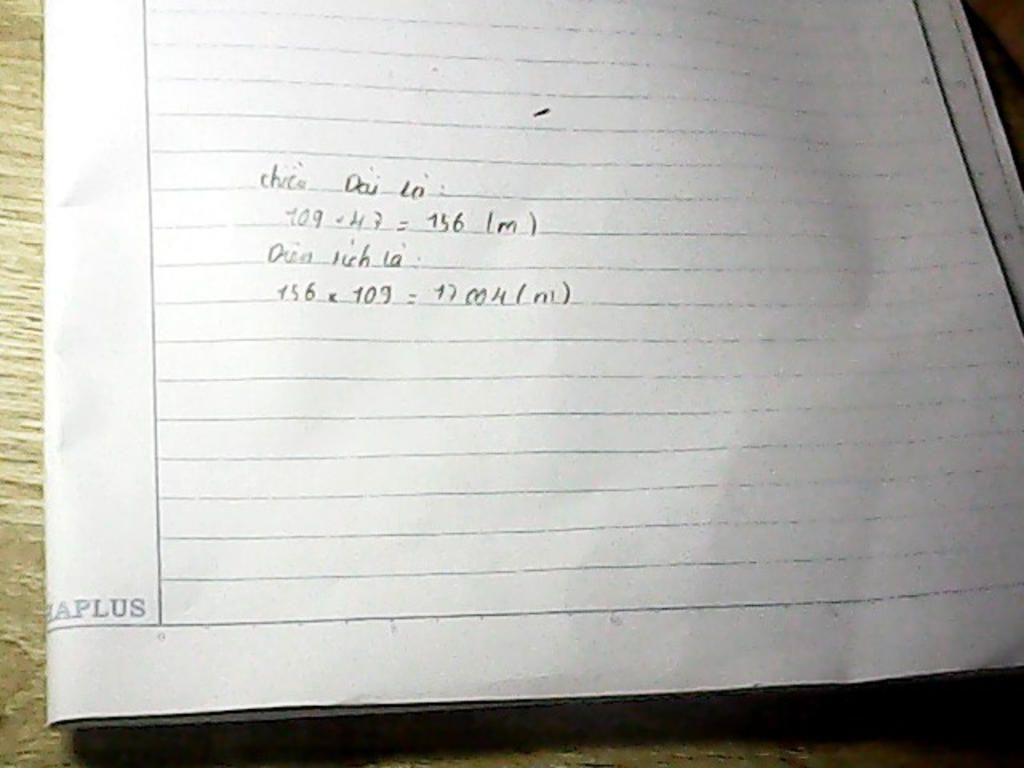 chiều Dài là:
109 + 47 = 156 (m)
Diện tích là:
156 x 109 = 17004 (m)
APLUS